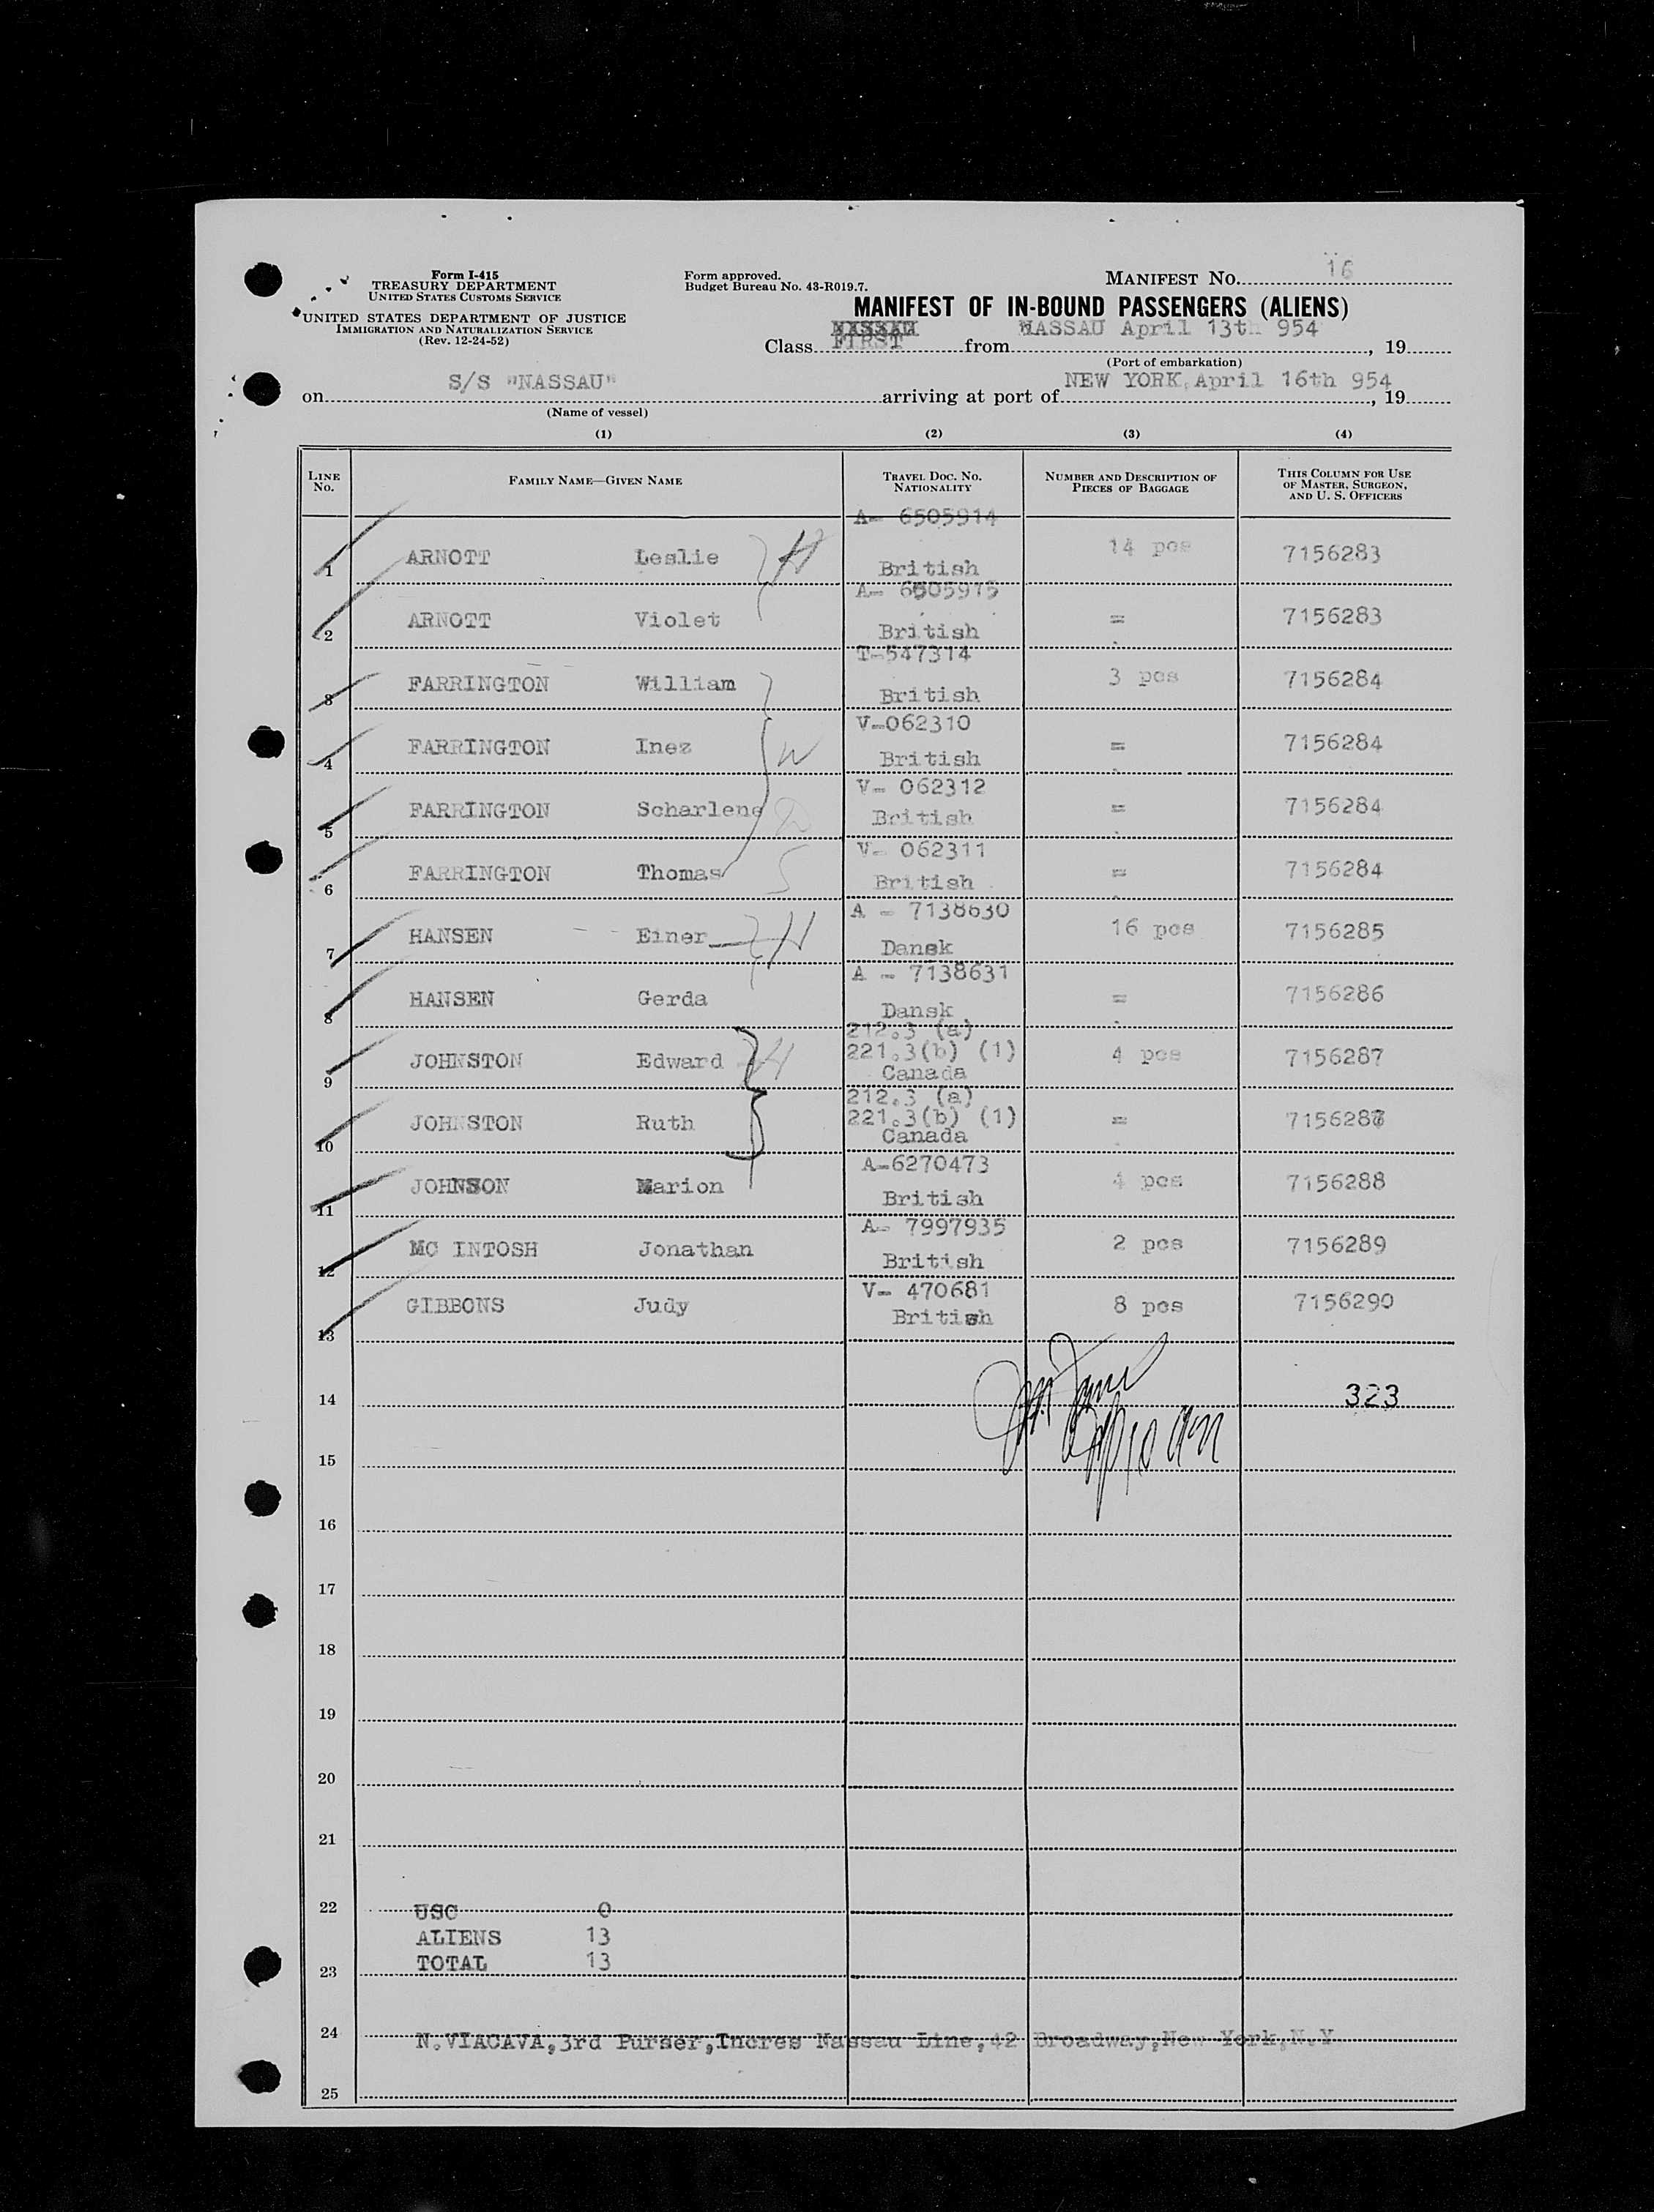 Form I-415
TREASURY DEPARTMENT
UNITED STATES CUSTOMS SERVICE
UNITED STATES DEPARTMENT OF JUSTICE
IMMIGRATION AND NATURALIZATION SERVICE
(Rev. 12-24-52)
Form approved.
Budget Bureau No. 43-R019.7.
MANIFEST NO. 16
MANIFEST OF IN-BOUND PASSENGERS (ALIENS)
Class FIRST from NASSAU April 13th 954, 19
(Port of embarkation)
on S/S "NASSAU" arriving at port of NEW YORK, April 16th 954, 19
(Name of vessel)
(1) (2) (3) (4)
LINE NO. FAMILY NAME—GIVEN NAME TRAVEL DOC. NO. NATIONALITY NUMBER AND DESCRIPTION OF PIECES OF BAGGAGE THIS COLUMN FOR USE OF MASTER, SURGEON, AND U. S. OFFICERS
A- 6505914
1 ARNOTT Leslie H British 14 pcs 7156283
A- 6505915
2 ARNOTT Violet British = 7156283
T-547314
3 FARRINGTON William British 3 pcs 7156284
V-062310
4 FARRINGTON Inez W British = 7156284
V- 062312
5 FARRINGTON Scharlene D British = 7156284
V- 062311
6 FARRINGTON Thomas S British = 7156284
A - 7138630
7 HANSEN Einer H Dansk 16 pcs 7156285
A - 7138631
8 HANSEN Gerda Dansk = 7156286
212.3 (a)
221.3(b) (1)
9 JOHNSTON Edward H Canada 4 pcs 7156287
212.3 (a)
221.3(b) (1)
10 JOHNSTON Ruth Canada = 7156287
A-6270473
11 JOHNSON Marion British 4 pcs 7156288
A- 7997935
12 MC INTOSH Jonathan British 2 pcs 7156289
V- 470681
13 GIBBONS Judy British 8 pcs 7156290
14 323
15
16
17
18
19
20
21
22 USC 0
ALIENS 13
23 TOTAL 13
24 N.VIACAVA,3rd Purser,Incres Nassau Line,42 Broadway,New York,N.Y
25